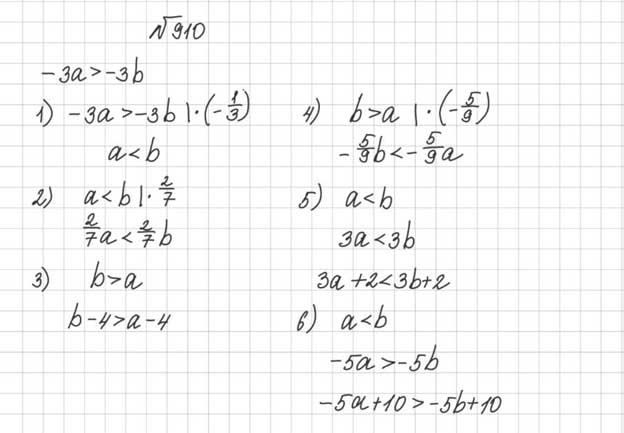 №910
-3a>-3b
1) -3a>-3b |·(-1/3)
a<b
2) a<b |· 2/7
2/7a<2/7b
3) b>a
b-4>a-4
4) b>a |·(-5/9)
-5/9b<-5/9a
5) a<b
3a<3b
3a+2<3b+2
6) a<b
-5a>-5b
-5a+10>-5b+10